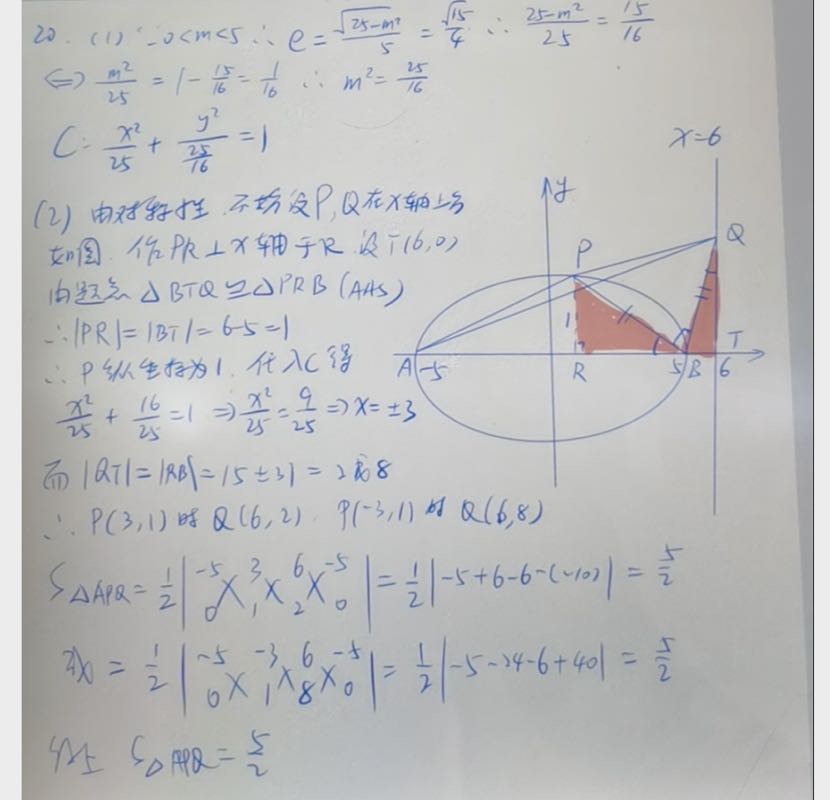 20. (1) ∵0<m<5 ∴ e = √(25-m²)/5 = √15/4 ∴ (25-m²)/25 = 15/16
⇔ m²/25 = 1 - 15/16 = 1/16 ∴ m² = 25/16
C: x²/25 + y²/(25/16) = 1
(2) 由对称性.不妨设P,Q在x轴上方
如图.作PR⊥x轴于R.设T(6,0)
由题意 △BTQ≌△PRB(AAS)
∴|PR|=|BT|=6-5=1
∴P纵坐标为1.代入C得
x²/25 + 16/25 = 1 ⇒ x²/25 = 9/25 ⇒ x=±3
而|QT|=|RB|=|5±3|=2或8
∴P(3,1)时Q(6,2).P(-3,1)时Q(6,8)
S△APQ = 1/2 | -5 3 6 -5
0 1 2 0 | = 1/2 |-5+6-6-(-10)| = 5/2
或 = 1/2 | -5 -3 6 -5
0 1 8 0 | = 1/2 |-5-24-6+40| = 5/2
综上 S△APQ = 5/2
x=6
y
Q
P
1
A
-5
R
5
B
6
T